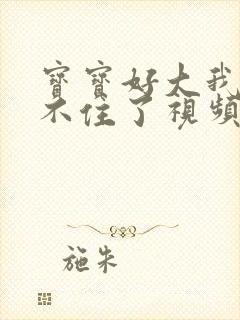 寶寶好大我
不住了視頻
施朱